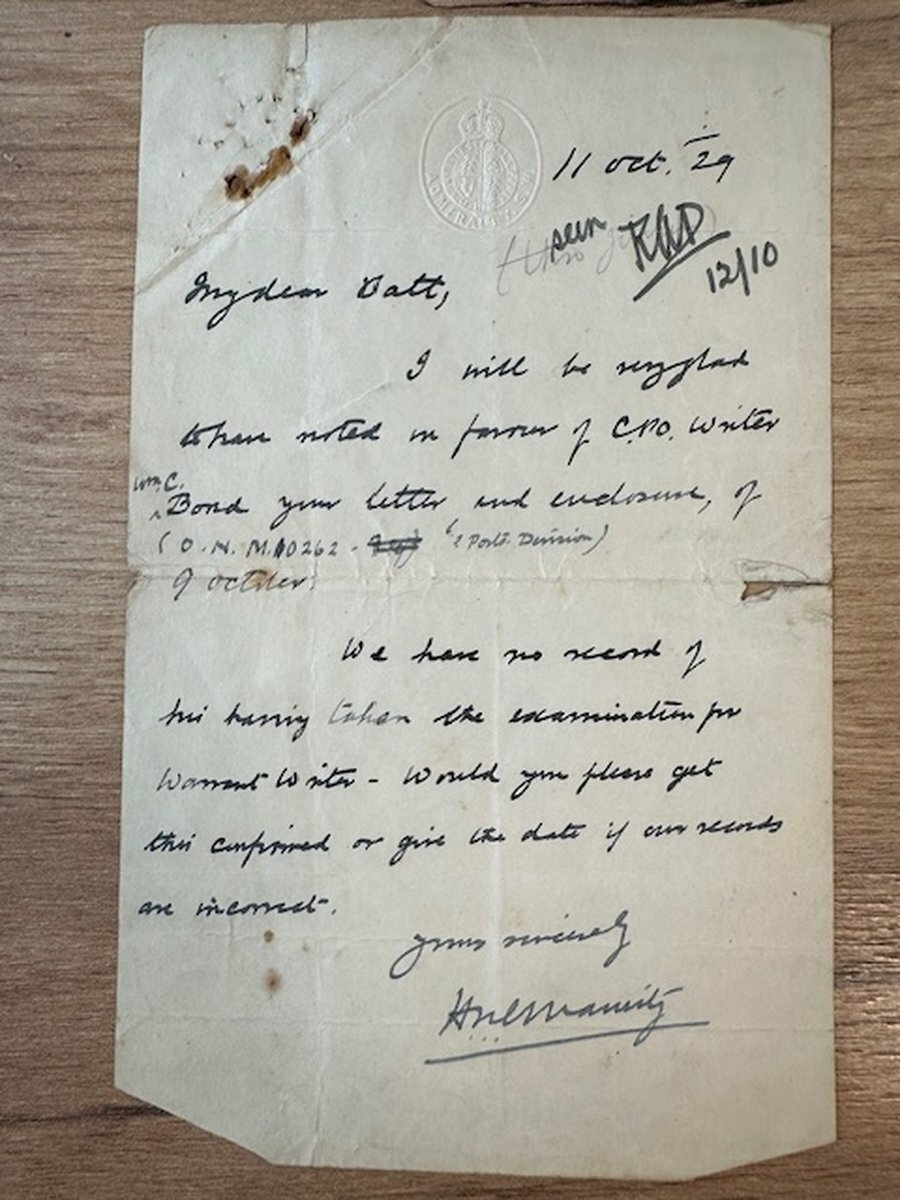 ADMIRALTY S.W.
11 Oct. '29
seen
12/10
My dear Batt,
I will be very glad
to have noted in favour of C.P.O. Writer
Wm. C.
Bond your letter and enclosure, of
(O.N. M.10262 - Ports. Division)
9 October.
We have no record of
his having taken the examination for
Warrant Writer - Would you please get
this confirmed or give the date if our records
are incorrect.
Yours sincerely